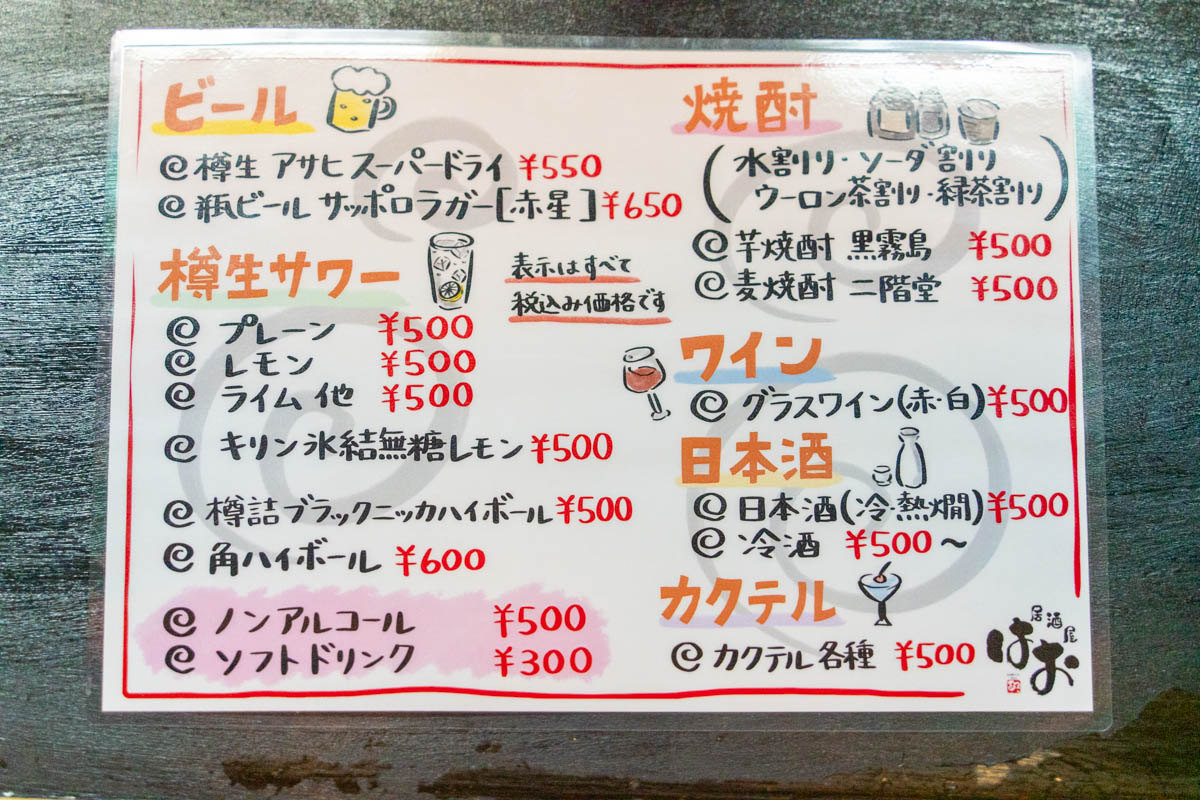 ビール
樽生 アサヒスーパードライ ¥550
瓶ビール サッポロラガー[赤星] ¥650
樽生サワー
表示はすべて
税込み価格です
プレーン ¥500
レモン ¥500
ライム 他 ¥500
キリン氷結無糖レモン ¥500
樽詰ブラックニッカハイボール ¥500
角ハイボール ¥600
ノンアルコール ¥500
ソフトドリンク ¥300
焼酎
(水割り・ソーダ割り
ウーロン茶割り・緑茶割り)
芋焼酎 黒霧島 ¥500
麦焼酎 二階堂 ¥500
ワイン
グラスワイン(赤・白) ¥500
日本酒
日本酒(冷・熱燗) ¥500
冷酒 ¥500〜
カクテル
カクテル各種 ¥500
居酒屋
はお